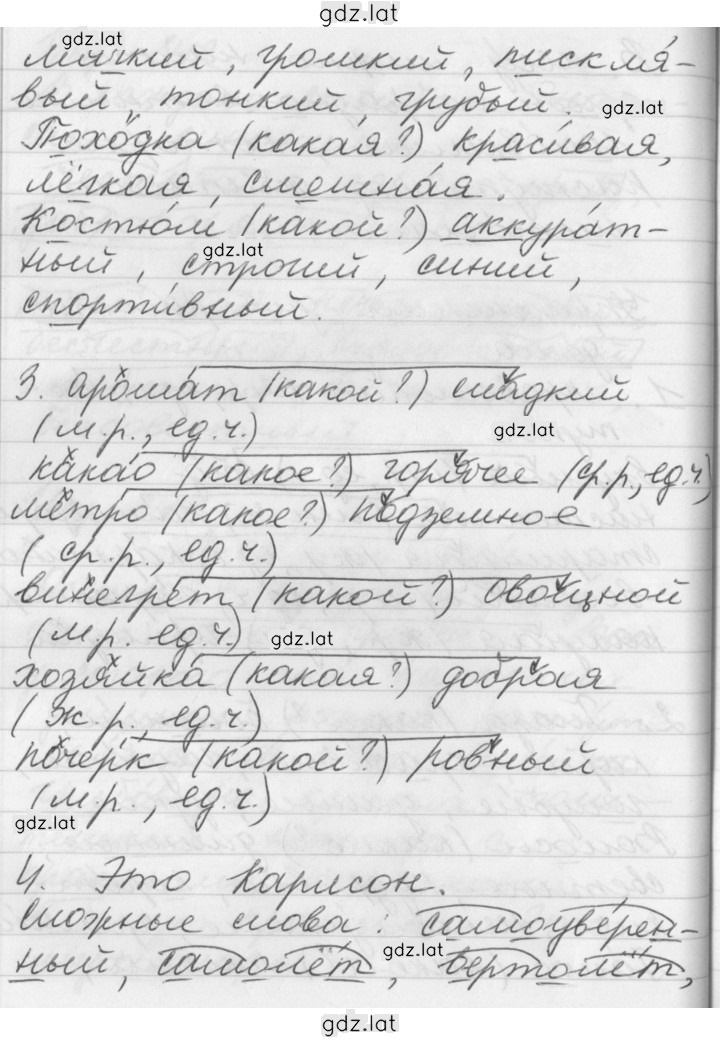 gdz.lat
gdz.lat
мягкий, громкий, пискля-
вый тонкий, грубый.
gdz.lat
Походка (какая?) красивая,
лёгкая, смешная.
Костюм (какой?) аккурат-
gdz.lat
ный, строгий, синий,
спортивный.
3. аромат (какой?) сладкий
(м.р., ед.ч.)
gdz.lat
какао (какое?) горячее (ср.р., ед.ч.)
метро (какое?) подземное
(ср.р., ед.ч.)
винегрет (какой?) овощной
(м.р. ед.ч.)
gdz.lat
хозяйка (какая?) добрая
(ж.р., ед.ч.)
почерк (какой?) ровный
(м.р., ед.ч.)
gdz.lat
4. Это Карлсон.
Сложные слова: самоуверен-
gdz.lat
ный, самолёт, вертолёт,
gdz.lat